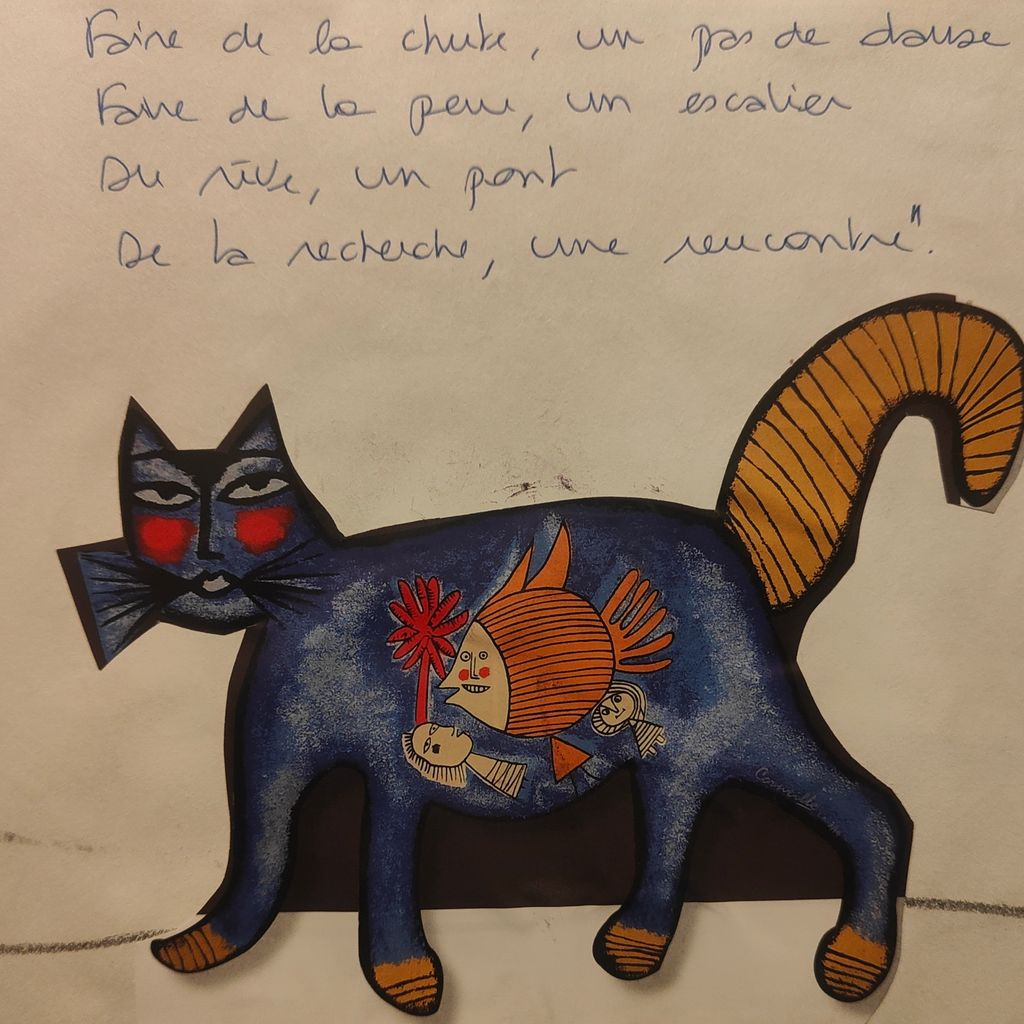 Faire de la chute, un pas de danse
Faire de la peur, un escalier
Du rêve, un pont
De la recherche, une rencontre".